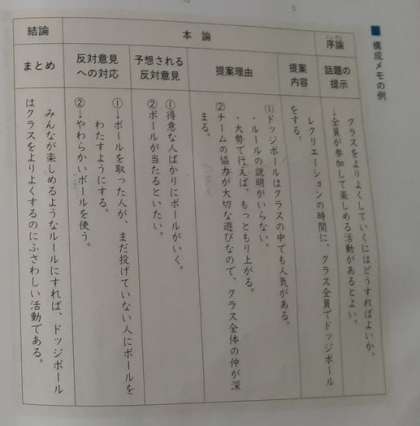 構成メモの例
序論
じょろん
話題の
提示
クラスをよりよくしていくにはどうすればよいか。
→全員が参加して楽しめる活動があるとよい。
本論
提案
内容
レクリエーションの時間に、クラス全員でドッジボール
をする。
提案理由
①ドッジボールはクラスの中でも人気がある。
・ルールの説明がいらない。
・大勢で行えば、もっともり上がる。
②チームの協力が大切な遊びなので、クラス全体の仲が深
まる。
予想される
反対意見
①得意な人ばかりにボールがいく。
②ボールが当たるといたい。
反対意見
への対応
①→ボールを取った人が、まだ投げていない人にボールを
わたすようにする。
②→やわらかいボールを使う。
結論
まとめ
みんなが楽しめるようなルールにすれば、ドッジボール
はクラスをよりよくするのにふさわしい活動である。